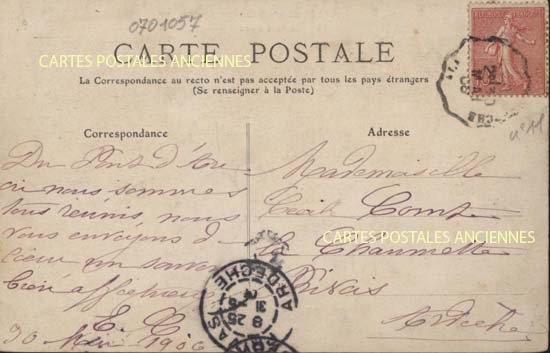 0701057
CARTE POSTALE
CARTES POSTALES ANCIENNES
La Correspondance au recto n'est pas acceptée par tous les pays étrangers
(Se renseigner à la Poste)
Correspondance
Du Pont d'Arc
où nous sommes
tous réunis nous
vous envoyons d
cœur un
bien affectueux
E. C
30 1906
Adresse
Mademoiselle
Comte
CARTES POSTALES ANCIENNES
La Chaumette
Ardèche
n° 11
ARDECHE
8 25
31